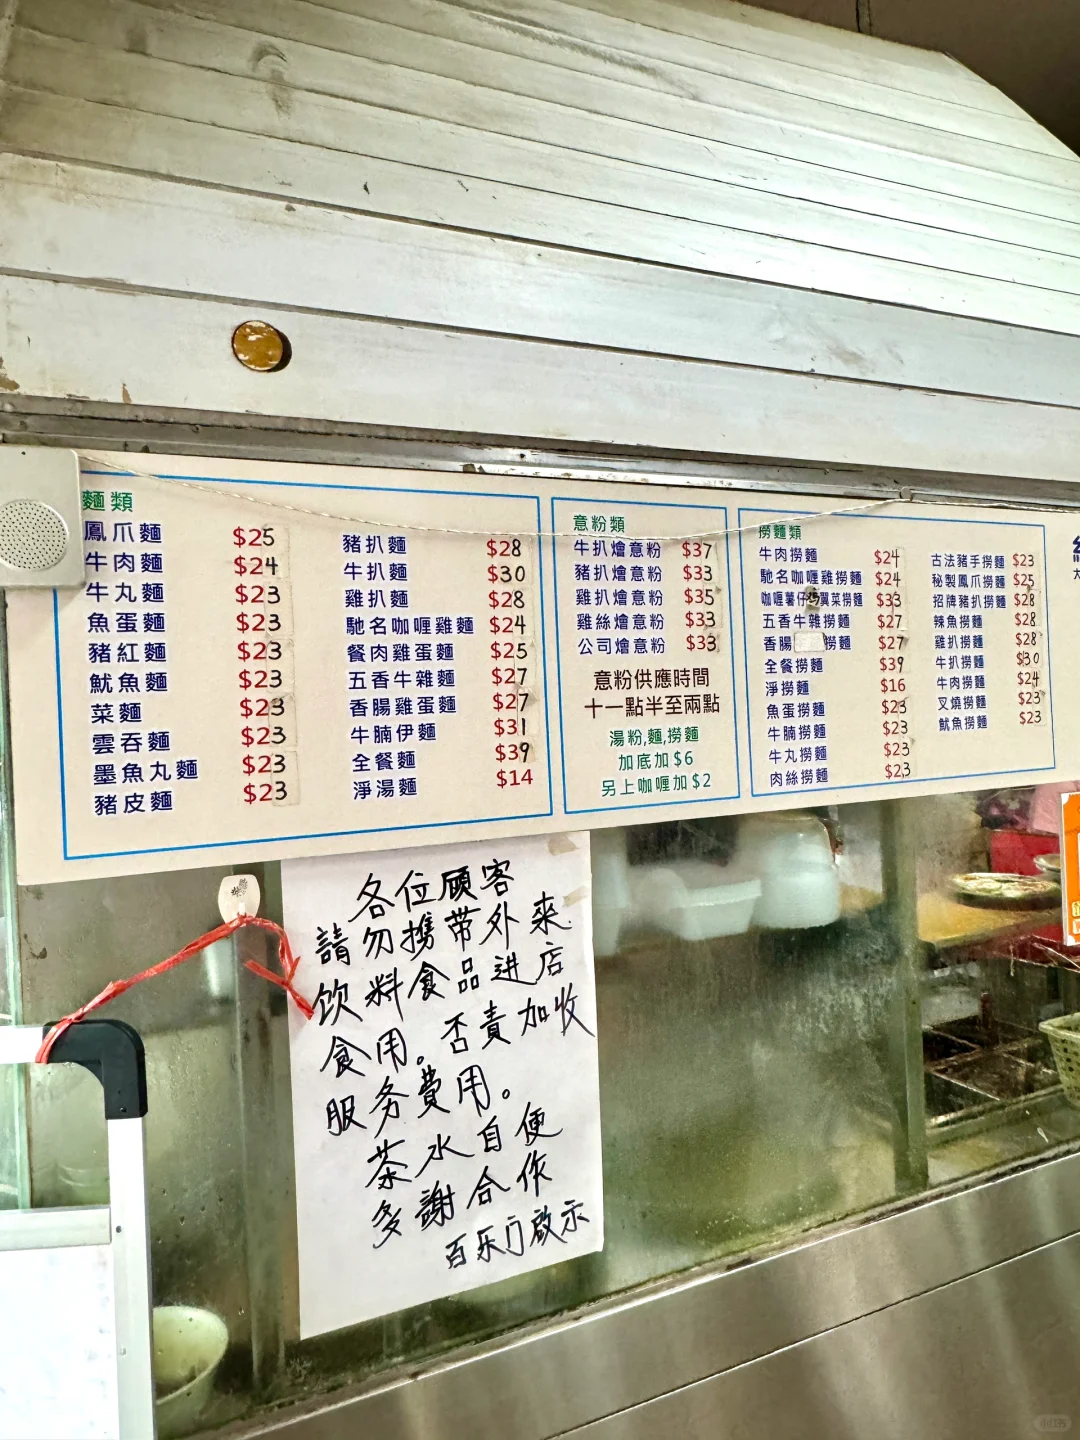 麵類
鳳爪麵 $25
牛肉麵 $24
牛丸麵 $23
魚蛋麵 $23
豬紅麵 $23
魷魚麵 $23
菜麵 $23
雲吞麵 $23
墨魚丸麵 $23
豬皮麵 $23
豬扒麵 $28
牛扒麵 $30
雞扒麵 $28
馳名咖喱雞麵 $24
餐肉雞蛋麵 $25
五香牛雜麵 $27
香腸雞蛋麵 $27
牛腩伊麵 $31
全餐麵 $39
淨湯麵 $14
意粉類
牛扒燴意粉 $37
豬扒燴意粉 $33
雞扒燴意粉 $35
雞絲燴意粉 $33
公司燴意粉 $33
意粉供應時間
十一點半至兩點
湯粉,麵,撈麵
加底加$6
另上咖喱加$2
撈麵類
牛肉撈麵 $24
馳名咖喱雞撈麵 $24
咖喱薯仔翼菜撈麵 $33
五香牛雜撈麵 $27
香腸 撈麵 $27
全餐撈麵 $39
淨撈麵 $16
魚蛋撈麵 $23
牛腩撈麵 $23
牛丸撈麵 $23
肉絲撈麵 $23
古法豬手撈麵 $23
秘製鳳爪撈麵 $25
招牌豬扒撈麵 $28
辣魚撈麵 $28
雞扒撈麵 $28
牛扒撈麵 $30
牛肉撈麵 $24
叉燒撈麵 $23
魷魚撈麵 $23
各位顾客
請勿携带外来
饮料食品进店
食用。否責加收
服务費用。
茶水自便
多謝合作
百乐门啟示